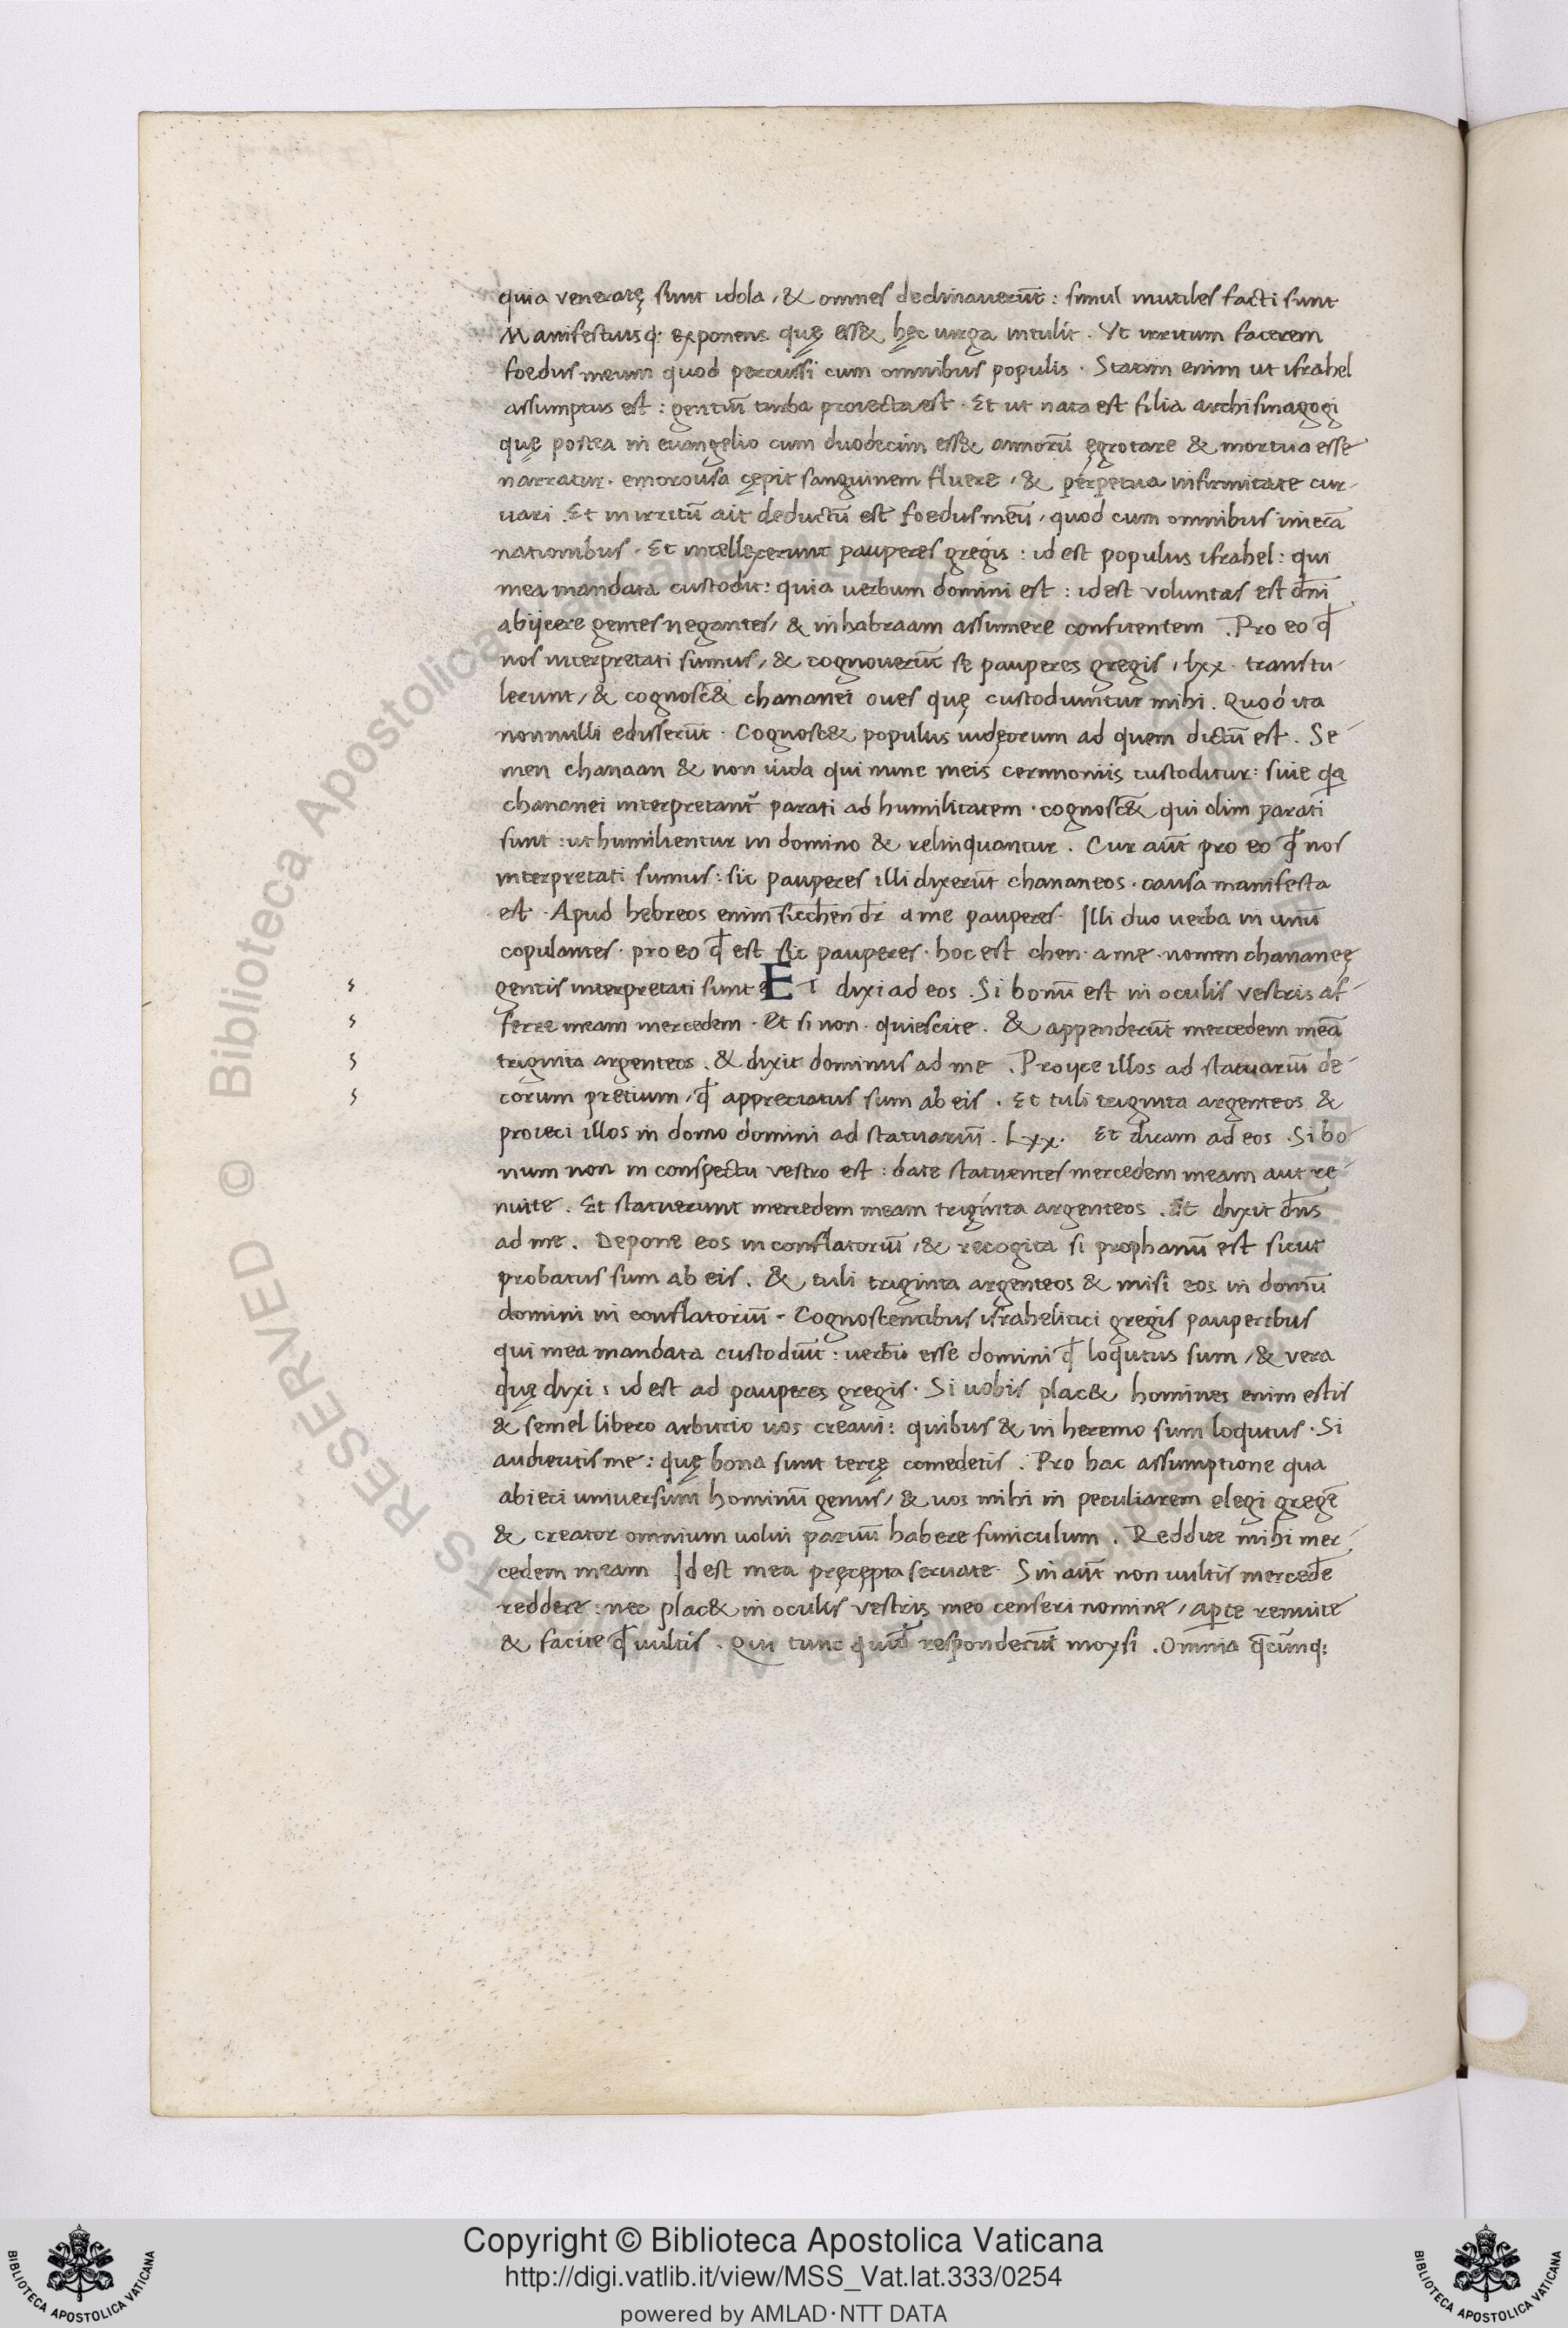 quia veneratę sunt idola, & omnes declinauerūt: simul inutiles facti sunt
Manifestiusq: exponens quę ess& hęc uirga intulit. Vt irritum facerem
foedus meum quod percussi cum omnibus populis. Statim enim ut israhel
assumptus est: gentiū turba proiecta est. Et ut nata est filia archisinagogi
quę postea in euangelio cum duodecim ess& annorū ęgrotare & mortua esse
narratur. emorousa cępit sanguinem fluere, & perpetua infirmitate cur-
uari. Et in irritū ait deductū est foedus meū, quod cum omnibus inierā
nationibus. Et intellexerunt pauperes gregis: id est populus israhel: qui
mea mandata custodit: quia uerbum domini est: id est voluntas est dñi
abijcere gentes negantes, & in habraam assumere confitentem. Pro eo qđ
nos interpretati sumus, & cognouerūt sę pauperes gregis, lxx. transtu-
lerunt, & cognosc& chananei oues quę custodiuntur mihi. Quod ita
nonnulli edisserūt. Cognosc& populus iudęorum ad quem dictū est. Se-
men chanaan & non iuda qui nunc meis cerimoniis custoditur: siue qa
chananei interpretant̃ parati ad humilitatem. cognosc& qui olim parati
sunt: ut humilientur in domino & relinquantur. Cur aūt pro eo qđ nos
interpretati sumus: sic pauperes illi dixerūt chananeos. causa manifesta
est. Apud hebreos enim sicchen dr̄ a me pauperes. Illi duo uerba in unū
copulantes. pro eo qđ est sic pauperes. hoc est chen. a me. nomen chananeę
gentis interpretati sunt ET dixi ad eos. Si bonū est in oculis vestris af-
ferre meam mercedem. Et si non. quiescite. & appenderūt mercedem meā
triginta argenteos. & dixit dominus ad me. Proijce illos ad statuariū de-
corum pretium, qđ appreciatus sum ab eis. Et tuli triginta argenteos &
proieci illos in domo domini ad statuariū. Lxx. Et dicam ad eos. Si bo-
num non in conspectu vestro est: date statuentes mercedem meam aut re-
nuite. Et statuerunt mercedem meam triginta argenteos. Et dixit dñs
ad me. Depone eos in conflatoriū, & recogita si prophanū est sicut
probatus sum ab eis. & tuli triginta argenteos & misi eos in domū
domini in conflatoriū. Cognoscentibus israhelitici gregis pauperibus
qui mea mandata custodiūt: uerbū esse domini qđ loqutus sum, & vera
quę dixi: id est ad pauperes gregis. Si uobis plac& homines enim estis
& semel libero arbitrio uos creaui: quibus & in heremo sum loqutus. Si
audieritis me: quę bona sunt terrę comedetis. Pro hac assumptione qua
abieci universum hominū genus, & uos mihi in peculiarem elegi gregē
& creator omnium uolui paruū habere funiculum. Reddite mihi mer-
cedem meam Id est mea pręcępta seruate. Sin aūt non uultis mercedē
reddere: nec plac& in oculis vestris meo censeri nomine, aperte renuite
& facite qđ uultis. Qui tunc quid respondecut moysi. Omnia qcūnq:
Copyright © Biblioteca Apostolica Vaticana
http://digi.vatlib.it/view/MSS_Vat.lat.333/0254
powered by AMLAD·NTT DATA